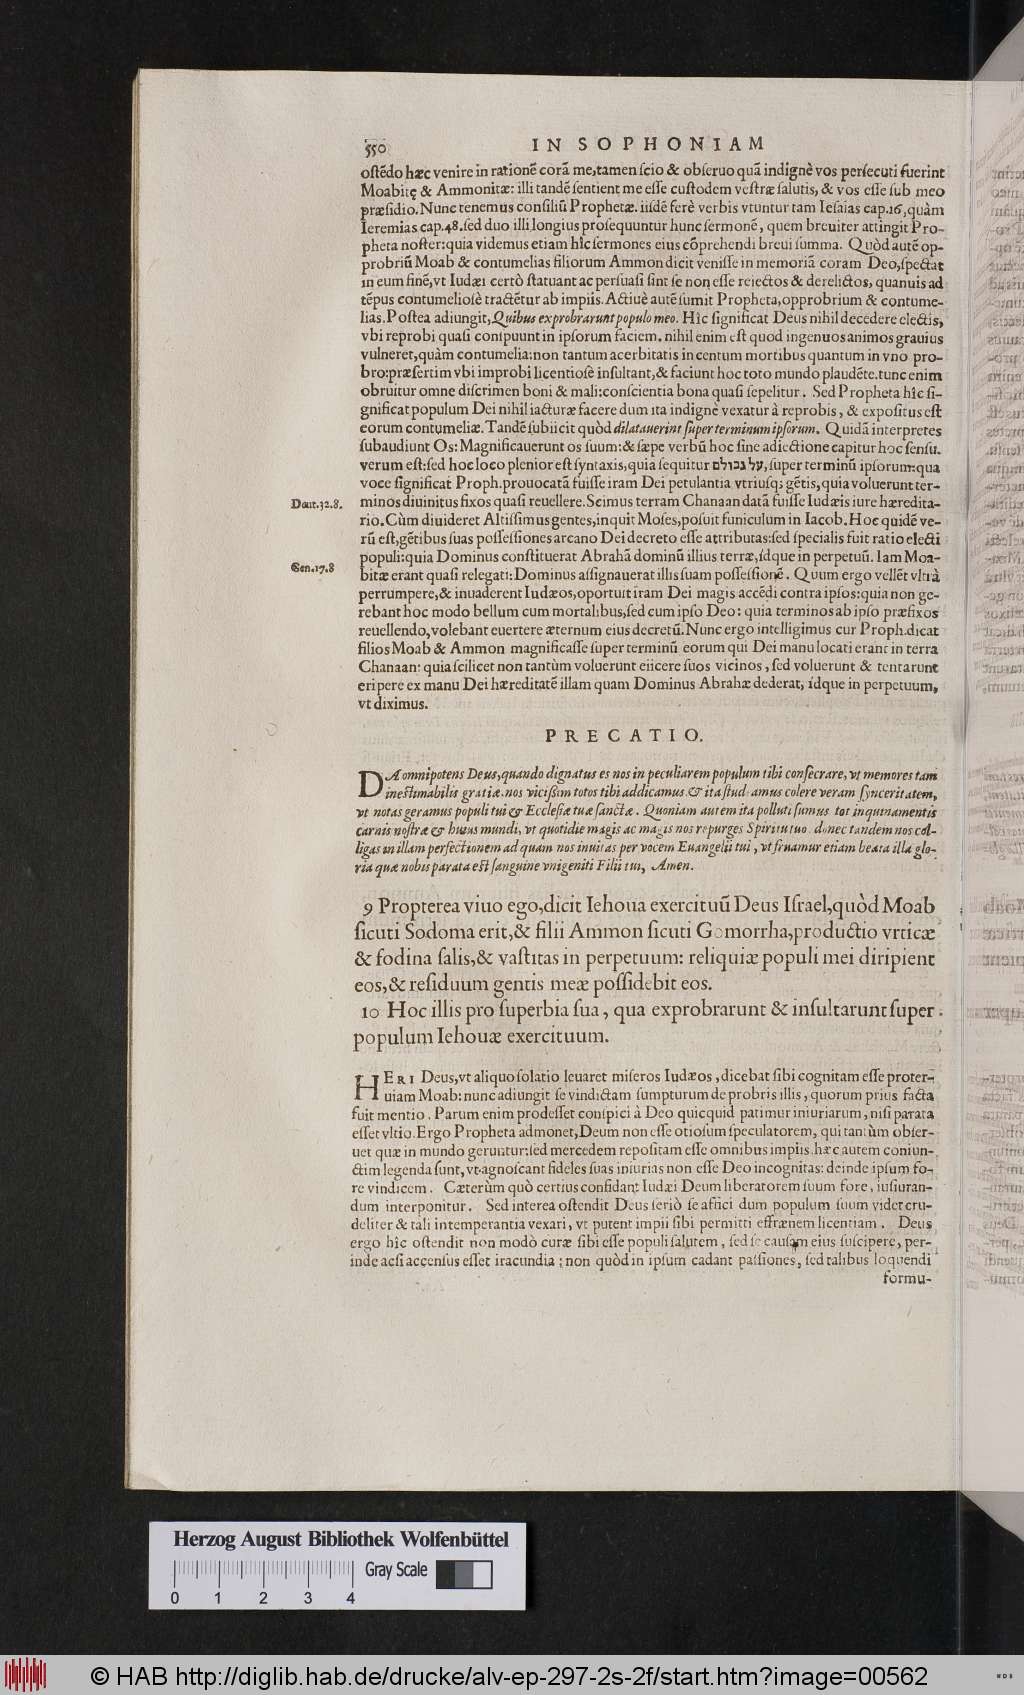 550 IN SOPHONIAM
ostẽdo hæc venire in rationẽ corã me, tamen scio & obseruo quã indignè vos persecuti fuerint
Moabitę & Ammonitæ: illi tandẽ sentient me esse custodem vestræ salutis, & vos esse sub meo
præsidio. Nunc tenemus consiliũ Prophetæ. iisdẽ ferè verbis vtuntur tam Iesaias cap. 16, quàm
Ieremias cap. 48. sed duo illi longius prosequuntur hunc sermonẽ, quem breuiter attingit Pro-
pheta noster: quia videmus etiam hîc sermones eius cõprehendi breui summa. Quòd autẽ op-
probriũ Moab & contumelias filiorum Ammon dicit venisse in memoriã coram Deo, spectat
in eum finẽ, vt Iudæi certò statuant ac persuasi sint se non esse reiectos & derelictos, quanuis ad
tẽpus contumeliosè tractẽtur ab impiis. Actiuè autẽ sumit Propheta, opprobrium & contume-
lias. Postea adiungit, Quibus exprobrarunt populo meo. Hîc significat Deus nihil decedere electis,
vbi reprobi quasi conspuunt in ipsorum faciem. nihil enim est quod ingenuos animos grauius
vulneret, quàm contumelia: non tantum acerbitatis in centum mortibus quantum in vno pro-
bro: præsertim vbi improbi licentiosè insultant, & faciunt hoc toto mundo plaudẽte. tunc enim
obruitur omne discrimen boni & mali: conscientia bona quasi sepelitur. Sed Propheta hîc si-
gnificat populum Dei nihil iacturæ facere dum ita indignè vexatur à reprobis, & expositus est
eorum contumeliæ. Tandẽ subiicit quòd dilatauerint super terminum ipsorum. Quidã interpretes
subaudiunt Os: Magnificauerunt os suum: & sæpe verbũ hoc sine adiectione capitur hoc sensu.
verum est: sed hoc loco plenior est syntaxis, quia sequitur על גבולם, super terminũ ipsorum: qua
voce significat Proph. prouocatã fuisse iram Dei petulantia vtriusq; gẽtis, quia voluerunt ter-
Deut. 32. 8. minos diuinitus fixos quasi reuellere. Scimus terram Chanaan datã fuisse Iudæis iure hæredita-
rio. Cùm diuideret Altissimus gentes, inquit Moses, posuit funiculum in Iacob. Hoc quidẽ ve-
rũ est, gẽtibus suas possessiones arcano Dei decreto esse attributas: sed specialis fuit ratio electi
populi: quia Dominus constituerat Abrahã dominũ illius terræ, ídque in perpetuũ. Iam Moa-
Gen. 17. 8 bitæ erant quasi relegati: Dominus assignauerat illis suam possessionẽ. Quum ergo vellẽt vltrà
perrumpere, & inuaderent Iudæos, oportuit iram Dei magis accẽdi contra ipsos: quia non ge-
rebant hoc modo bellum cum mortalibus, sed cum ipso Deo: quia terminos ab ipso præfixos
reuellendo, volebant euertere æternum eius decretũ. Nunc ergo intelligimus cur Proph. dicat
filios Moab & Ammon magnificasse super terminũ eorum qui Dei manu locati erant in terra
Chanaan: quia scilicet non tantùm voluerunt eiicere suos vicinos, sed voluerunt & tentarunt
eripere ex manu Dei hæreditatẽ illam quam Dominus Abrahæ dederat, ídque in perpetuum,
vt diximus.
PRECATIO.
DA omnipotens Deus, quando dignatus es nos in peculiarem populum tibi consecrare, vt memores tam
inestimabilis gratiæ, nos vicissim totos tibi addicamus & ita studeamus colere veram synceritatem,
vt notas geramus populi tui & Ecclesiæ tuæ sanctæ. Quoniam autem ita polluti sumus tot inquinamentis
carnis nostræ & huius mundi, vt quotidie magis ac magis nos repurges Spiritu tuo, donec tandem nos col-
ligas in illam perfectionem ad quam nos inuitas per vocem Euangelii tui, vt fruamur etiam beata illa glo-
ria quæ nobis parata est sanguine vnigeniti Filii tui, Amen.
9 Propterea viuo ego, dicit Iehoua exercituũ Deus Israel, quòd Moab
sicuti Sodoma erit, & filii Ammon sicuti Gomorrha, productio vrticæ
& fodina salis, & vastitas in perpetuum: reliquiæ populi mei diripient
eos, & residuum gentis meæ possidebit eos.
10 Hoc illis pro superbia sua, qua exprobrarunt & insultarunt super
populum Iehouæ exercituum.
HERI Deus, vt aliquo solatio leuaret miseros Iudæos, dicebat sibi cognitam esse proter-
uiam Moab: nunc adiungit se vindictam sumpturum de probris illis, quorum prius facta
fuit mentio. Parum enim prodesset conspici à Deo quicquid patimur iniuriarum, nisi parata
esset vltio. Ergo Propheta admonet, Deum non esse otiosum speculatorem, qui tantùm obser-
uet quæ in mundo geruntur: sed mercedem repositam esse omnibus impiis. hæc autem coniun-
ctim legenda sunt, vt agnoscant fideles suas iniurias non esse Deo incognitas: deinde ipsum fo-
re vindicem. Cæterùm quò certius confidant Iudæi Deum liberatorem suum fore, iusiuran-
dum interponitur. Sed interea ostendit Deus seriò se affici dum populum suum videt cru-
deliter & tali intemperantia vexari, vt putent impii sibi permitti effrænem licentiam. Deus
ergo hîc ostendit non modò curæ sibi esse populi salutem, sed se causam eius suscipere, per-
inde acsi accensus esset iracundia: non quòd in ipsum cadant passiones, sed talibus loquendi
formu-
Herzog August Bibliothek Wolfenbüttel
Gray Scale
0 1 2 3 4
© HAB http://diglib.hab.de/drucke/alv-ep-297-2s-2f/start.htm?image=00562